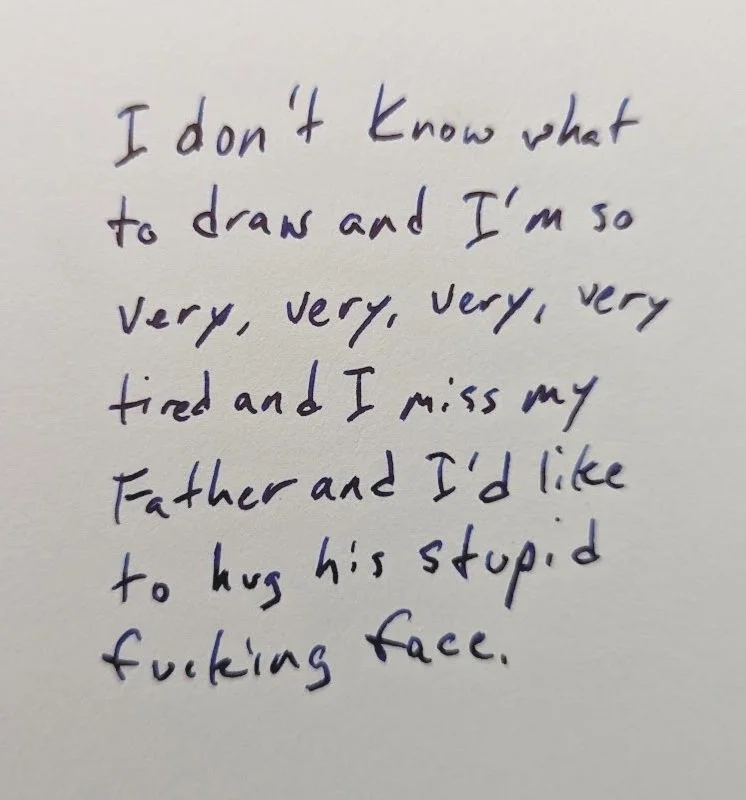 I don't know what
to draw and I'm so
very, very, very, very
tired and I miss my
Father and I'd like
to hug his stupid
fucking face.